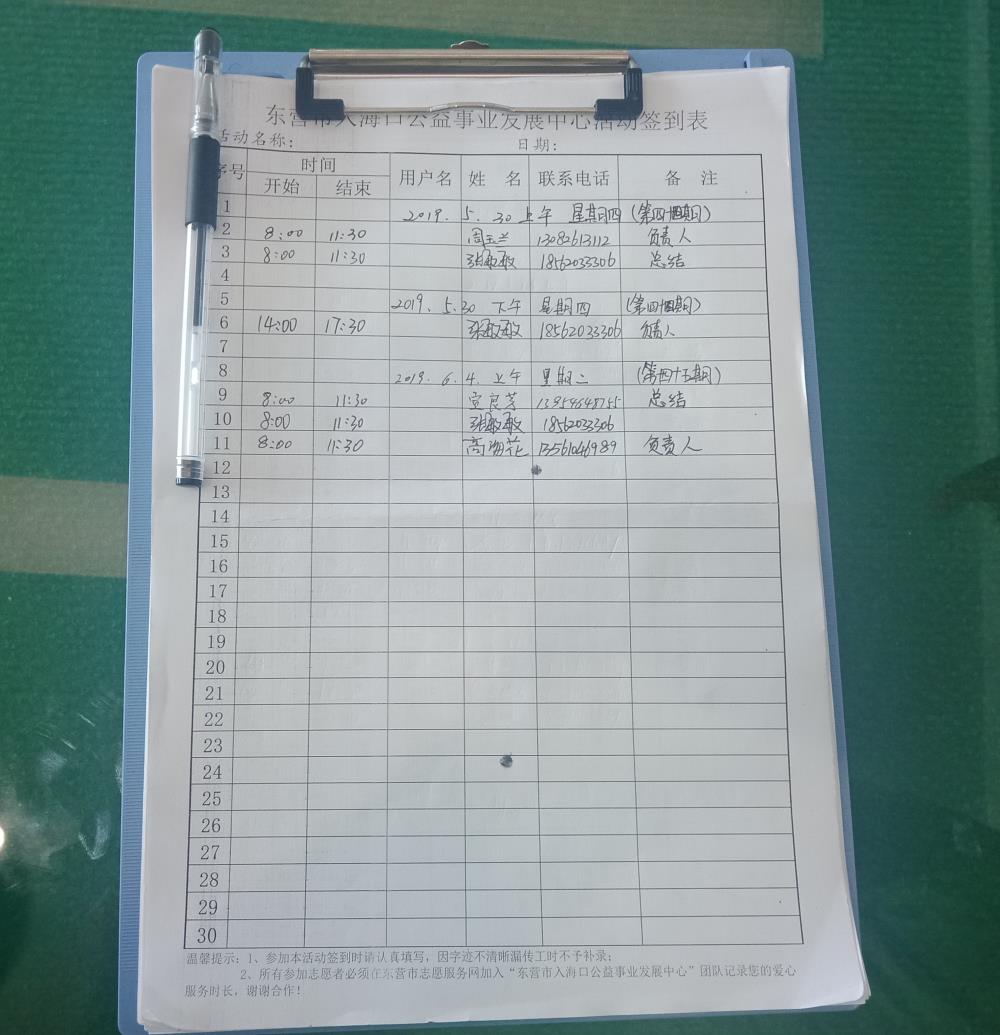 东营市入海口公益事业发展中心活动签到表
活动名称: 日期:
序号 时间 用户名 姓 名 联系电话 备 注
开始 结束
1 2019. 5. 30 上午 星期四 (第四十四期)
2 8:00 11:30 周玉兰 13082613112 负责人
3 8:00 11:30 张敏敏 18562033306 总结
4
5 2019. 5.30 下午 星期四 (第四十四期)
6 14:00 17:30 张敏敏 18562033306 负责人
7
8 2019. 6. 4. 上午 星期二 (第四十五期)
9 8:00 11:30 宣良芳 13954648755 总结
10 8:00 11:30 张敏敏 18562033306
11 8:00 11:30 高海花 13561046989 负责人
12
13
14
15
16
17
18
19
20
21
22
23
24
25
26
27
28
29
30
温馨提示: 1、参加本活动签到时请认真填写,因字迹不清晰漏传工时不予补录;
2、所有参加志愿者必须在东营市志愿服务网加入“东营市入海口公益事业发展中心”团队记录您的爱心
服务时长,谢谢合作!